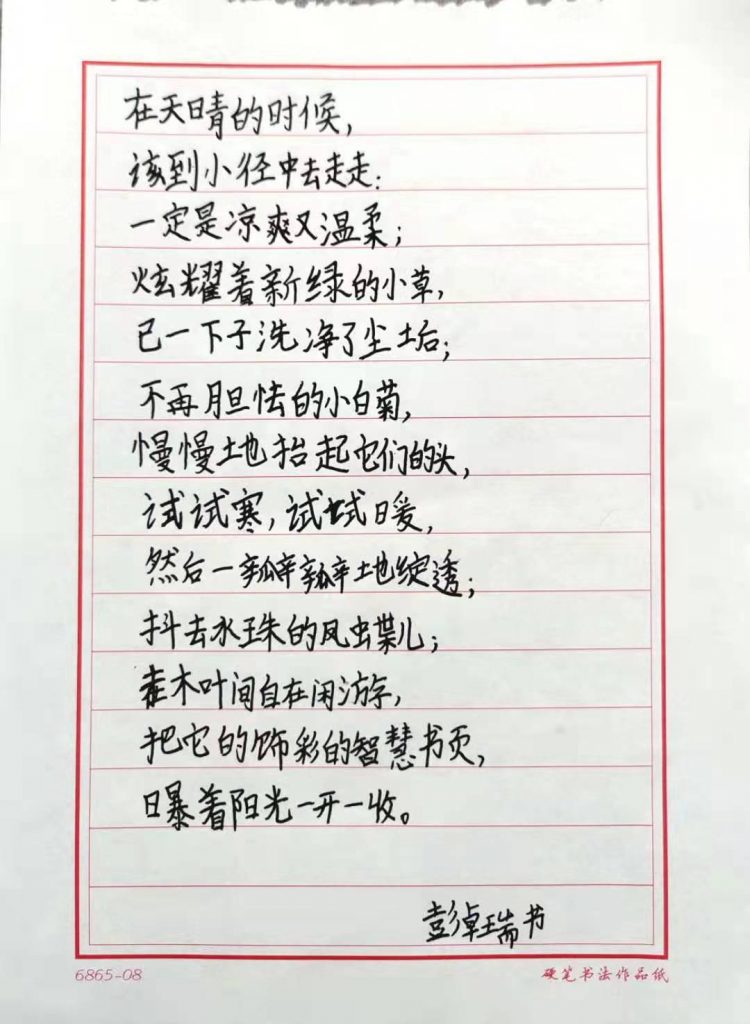 在天晴的时候，
该到小径中去走走：
一定是凉爽又温柔；
炫耀着新绿的小草，
已一下子洗净了尘土后；
不再胆怯的小白菊，
慢慢地抬起它们的头，
试试寒，试试暖，
然后一瓣瓣地绽透；
抖去水珠的凤蝶儿；
在木叶间自在闲游，
把它的饰彩的智慧书页，
曝着阳光一开一收。
彭卓瑞书
6865-08
硬笔书法作品纸